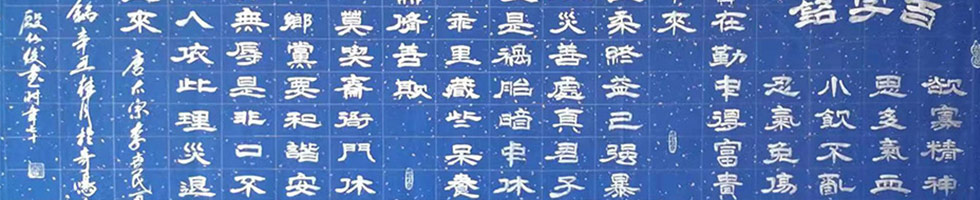 百字銘
欲寡精神
思多氣血
小飲不亂
忍氣免傷
在勤中得富貴
來
柔終益己強暴
災善處真君子
是禍胎暗中休
乖里藏些呆養
脩善欺
莫喫齋衙門休
鄉黨要和諧安
無辱是非口不
人依此理災退
來
唐太宗李世民
銘辛丑桂月於青島
書時年七十